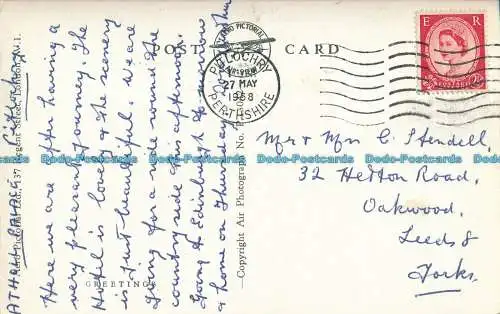 POST CARD
PITLOCHRY
27 MAY
1958
PERTHSHIRE
E R
POSTAGE
ATHOLL PALACE Pitlochry
Here we are after having a
very pleasant journey. The
Hotel is lovely & the scenery
is just beautiful. We are
going for a ride round the
country side this afternoon.
Going to Edinburgh tomorrow
& home on Thursday.
Mr & Mrs C Stendell,
32 Hetton Road,
Oakwood,
Leeds 8
Yorks.
GREETINGS
Copyright Air Photograph No.
137 Regent Street, London, W.1.
Dodo-Postcards
Dodo-Postcards
Dodo-Postcards
Dodo-Postcards
Dodo-Postcards